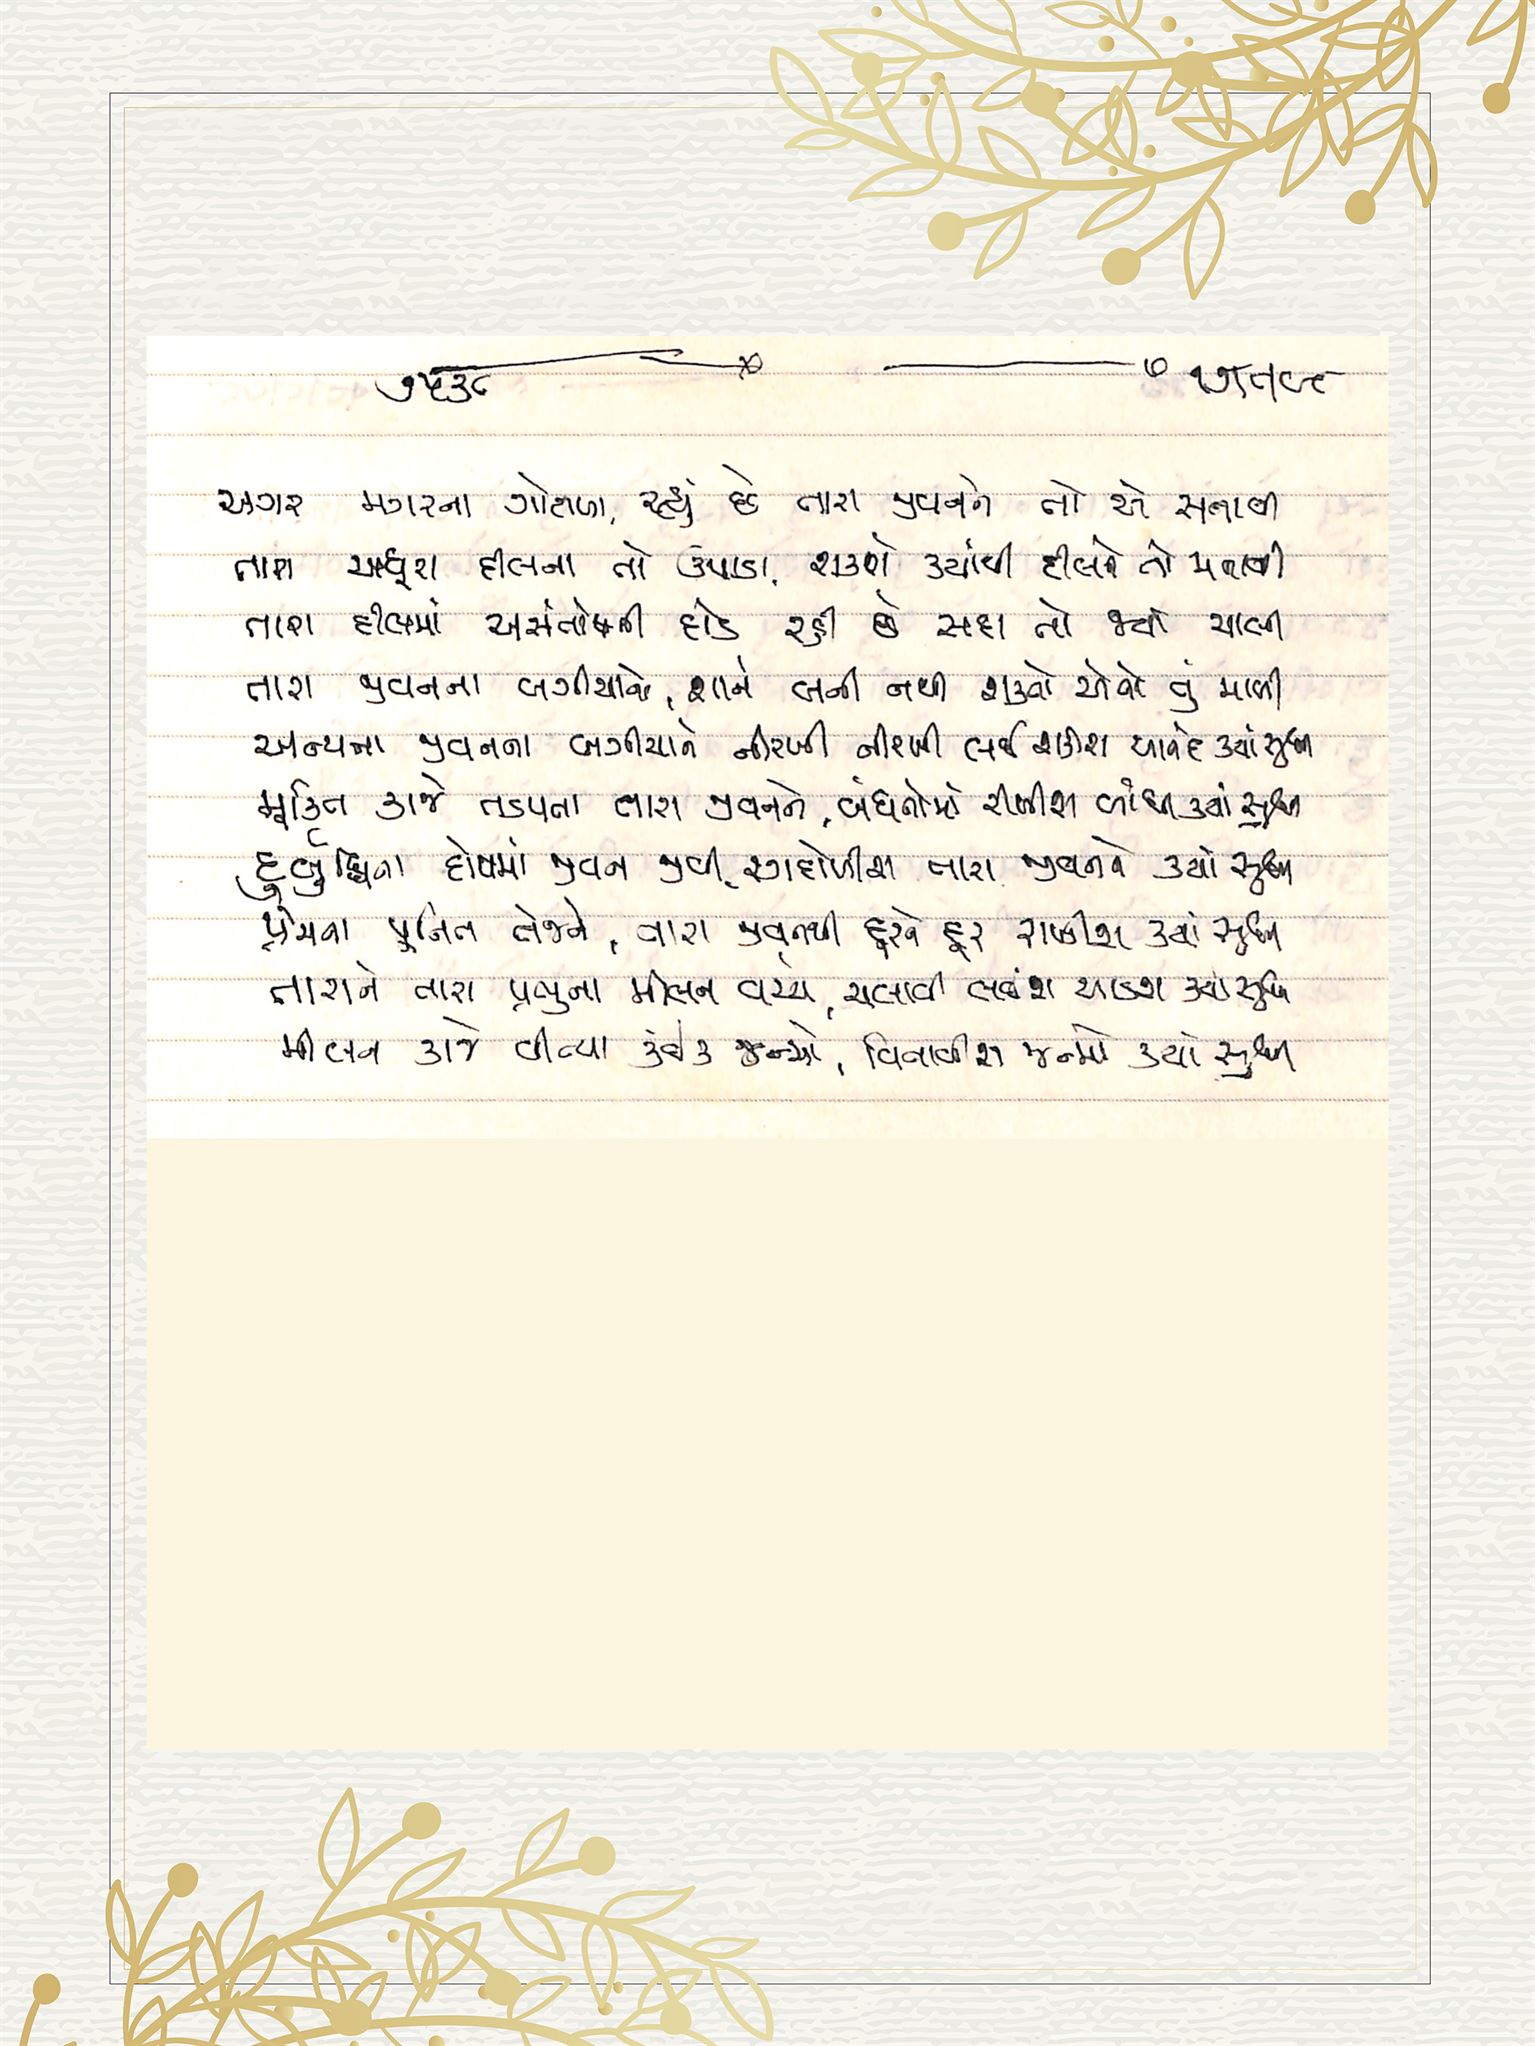 ૭૫૩૮
અગર મગરના ગોટાળા, રહ્યું છે તારા જીવનને તો એ સતાવી
તારા અધૂરા દીલના તો ઉપાડા, શકશે ક્યાંથી દીલને તો મનાવી
તારા દીલમાં અસંતોષની હોડ રહી છે સદા તો જ્યાં ચાલી
તારા જીવનના બગીચાને, શાને બની નથી શકતો એનો તું માળી
અન્યના જીવનના બગીચાને નીરખી નીરખી લઈ શકીશ આનંદ ક્યાં સુધી
મુક્તિ કાજે તડપતા તારા જીવનને, બંધનોમાં રાખીશ બાંધી ક્યાં સુધી
દુર્બુદ્ધિના દોષમાં જીવન જીવી, રગદોળીશ તારા જીવનને ક્યાં સુધી
પ્રેમના પુનિત તેજને, તારા જીવનથી દૂરને દૂર રાખીશ ક્યાં સુધી
તારાને તારા પ્રભુના મીલન વચ્ચે, ચલાવી લઈશ આડશ ક્યાં સુધી
મીલન કાજે વીત્યા કંઈક જન્મો, વિતાવીશ જન્મો ક્યાં સુધી